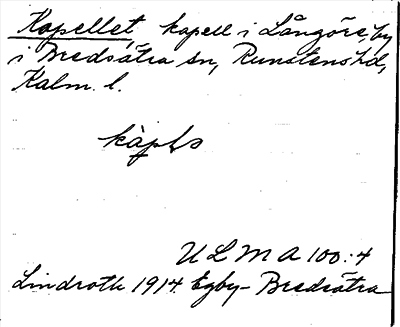 Kapellet, kapell i Långöre, by
i Bredsätra sn, Runstens hd,
Kalm. l.
ULMA 100:4
Lindroth 1914. Egby-Bredsätra